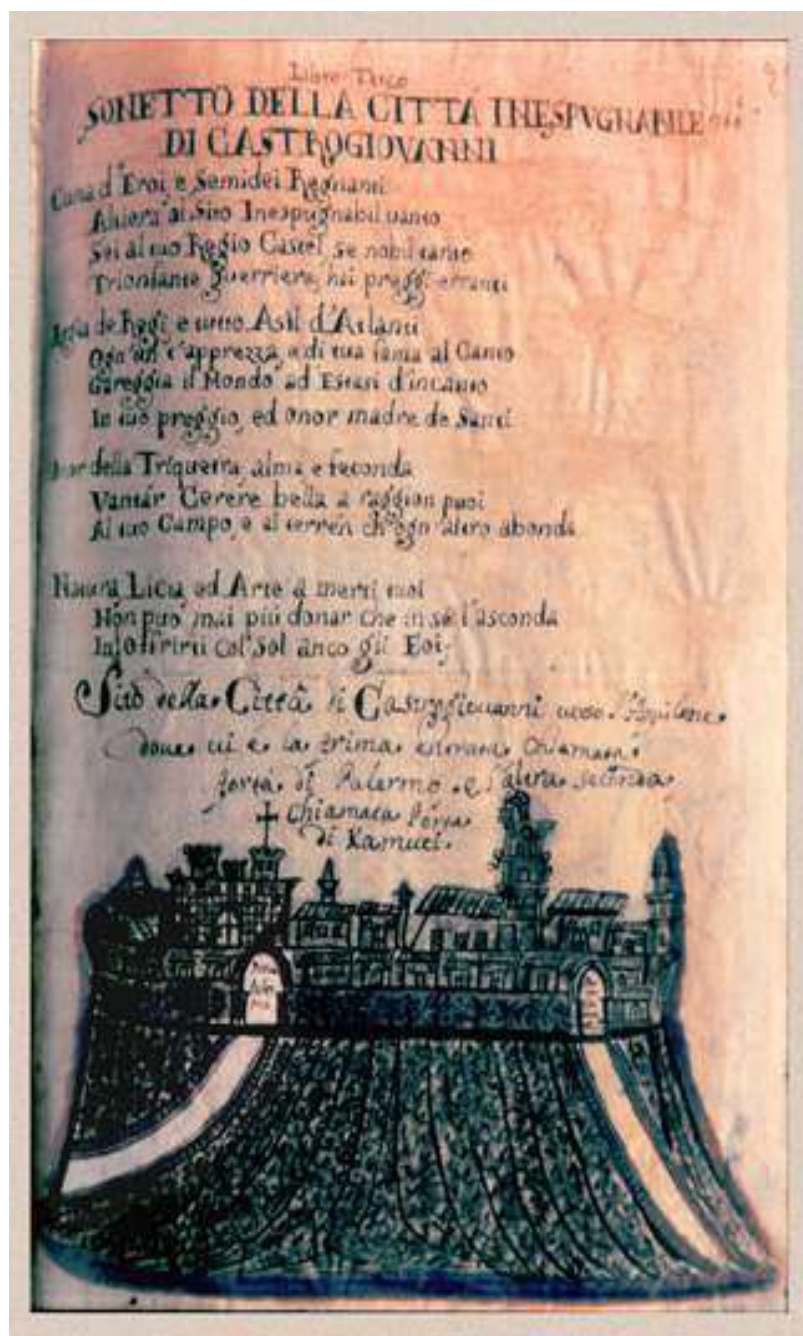 Libro Terzo
SONETTO DELLA CITTÁ INESPUGNABILE
DI CASTROGIOVANNI
Cuna d'Eroi, e Semidei Regnanti
Altera al Sito Inespugnabil vanto
Sei al tuo Regio Castel se nobil tanto
Trionfante guerriere, hai preggi erranti
de Regi, e Asil d'Atlanti
Ogn'un t'apprezza, e di tua fama al Canto
Gareggia il Mondo ad Estasi d'incanto
In tuo preggio, ed onor madre de Santi
della Triquetra alma e feconda
Vantár Cerere bella a raggion puoi
Al tuo Campo, e al terrén ch'ogn'altro abonda
Natura, Licu ed Arte a merti tuoi
Non puo' mai più donar che in sé l'asconda
In offrirti col'Sol anco gli Eoi;
Sito della Città di Castrogiovanni verso l'Aquilone
doue ui e la prima entrata Chiamata
porta di Palermo e l'altra seconda
Chiamata Porta
di Kamuti